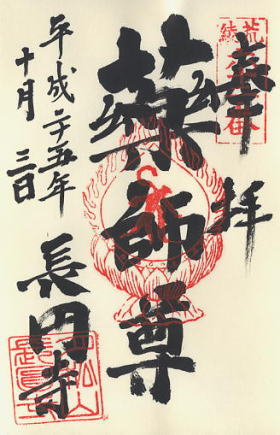 奉拝
薬師尊
長円寺
平成二十五年
十月三日